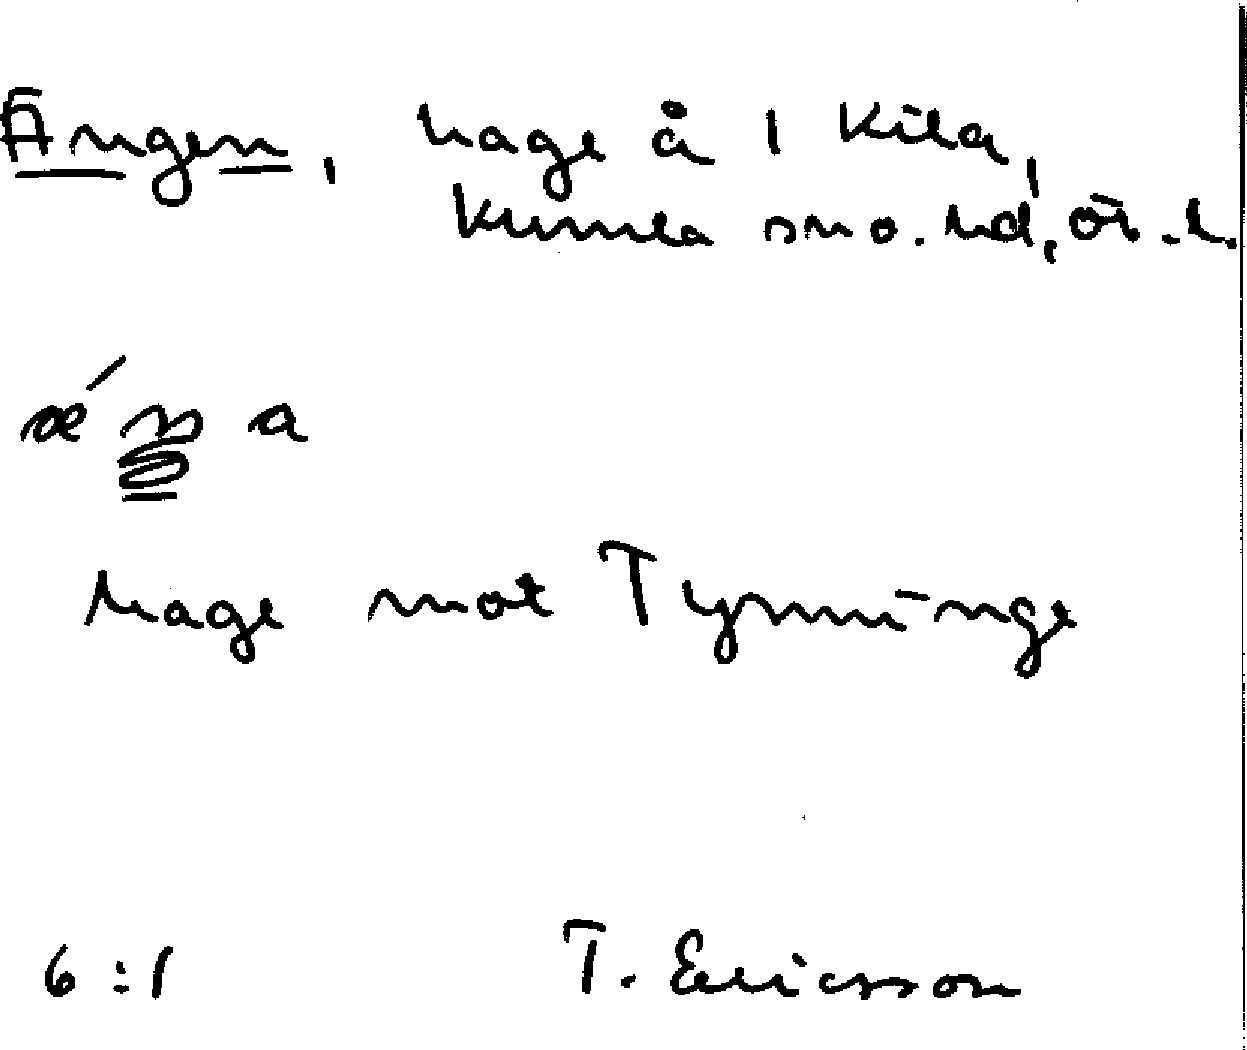 Ängen, hage å 1 Kila,
Kumla sn o. hd, Ör. l.
hage mot Tynninge
6:1 T. Ericsson